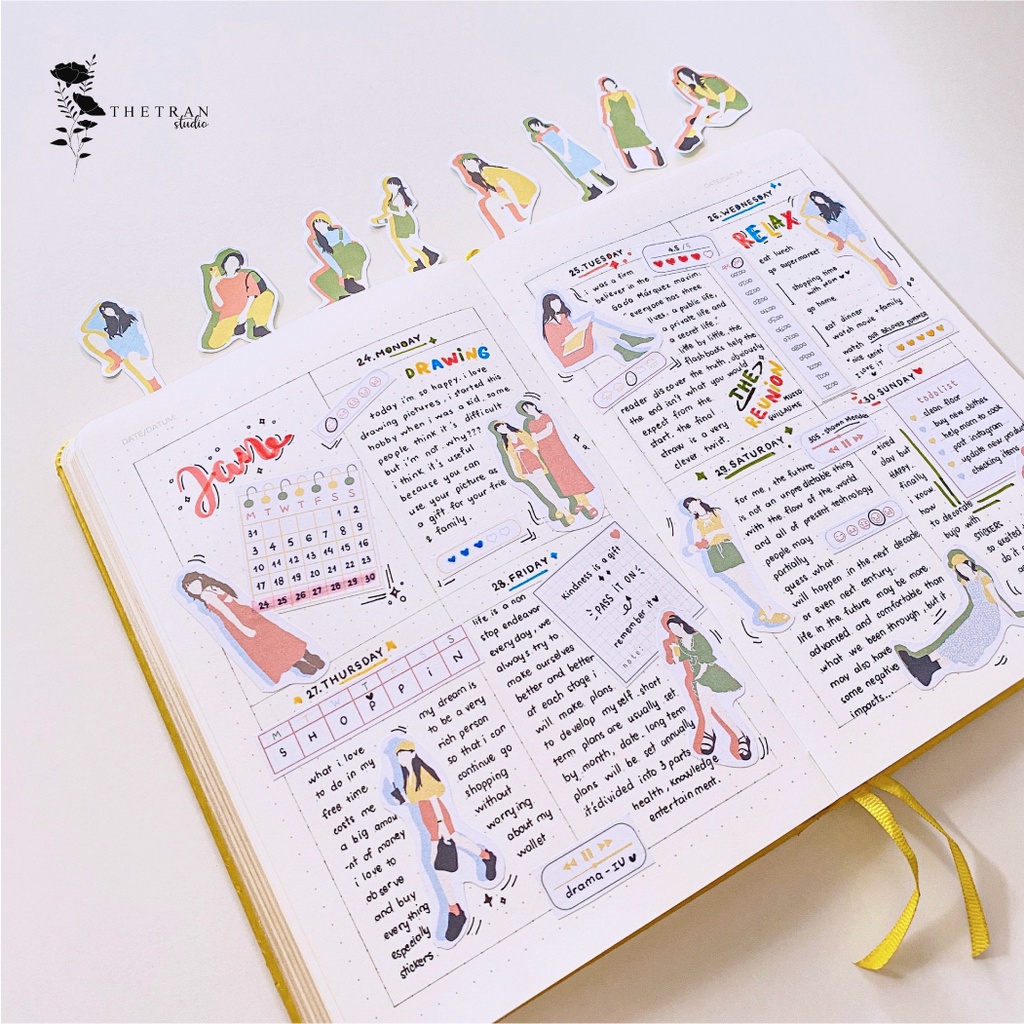 THETRAN
studio
DATE/DATUM:
June
M T W T F S S
31 1 2
3 4 5 6 7 8 9
10 11 12 13 14 15 16
17 18 19 20 21 22 23
24 25 26 27 28 29 30
24.MONDAY
DRAWING
today i'm so happy. i love
drawing pictures, i started this
hobby when i was a kid. some
people think it's difficult
but i'm not. why???
i think it's useful
because you can
use your picture as
a gift for your frie
& family.
27.THURSDAY
M T W T F S S
S H O P P i N
what i love
to do in my
free time
costs me
a big amou
-nt of money
i love to
observe
and buy
everything
especially
stickers
my dream is
to be a very
rich person
so that i can
continue go
shopping
without
worrying
about my
wallet
28.FRIDAY
life is a non
stop endeavor
everyday, we
always try to
make ourselves
better and better
at each stage i
will make plans
to develop myself. short
term plans are usually set
by month, date. long term
plans will be set annually
it's divided into 3 parts
health, knowledge
entertainment.
Kindness is a gift
PASS IT ON
remember it
note:
drama - IU
25.TUESDAY
4.5 /5
was a firm
believer in the
Gabo Márquez maxim.
"everyone has three
lives, a public life,
a private life and
a secret life."
little by little, the
flashbacks help the
reader discover the truth, obviously
the end isn't what you would
expect from the
start. the final
straw is a very
clever twist.
THE
REUNION
GUILLAUME MUSSO
DATE/DATUM:
26.WEDNESDAY
RELAX
eat lunch
go supermarket
shopping time
with mom
go home
eat dinner
watch movie + family
watch OUR BELOVED SUMMER
"nice series"
I LOVE IT
29.SATURDAY
305 - Shawn Mendes
for me, the future
is not an unpredictable thing
with the flow of the world
and all of present technology
people may
partially
guess what
will happen in the next decade
or even next century...
life in the future may be more
advanced and comfortable than
what we been through, but it
may also have
some negative
impacts...
30.SUNDAY
todolist
clean floor
buy new clothes
help mom to cook
post instagram
update new produc
checking items
a tired
day but
HAPPY.
finally
i know
how to
decorate
bujo with
STICKERS
so excited
do it